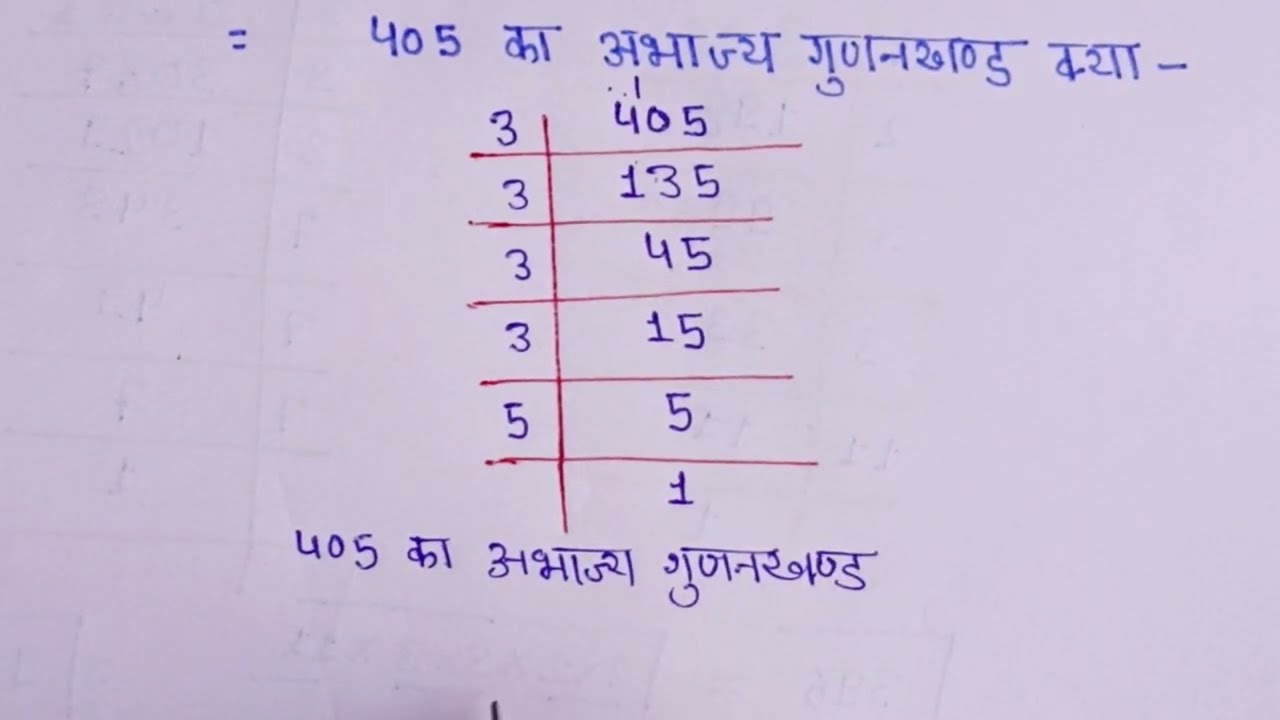 = 405 का अभाज्य गुणनखण्ड क्या -
3 405
3 135
3 45
3 15
5 5
1
405 का अभाज्य गुणनखण्ड